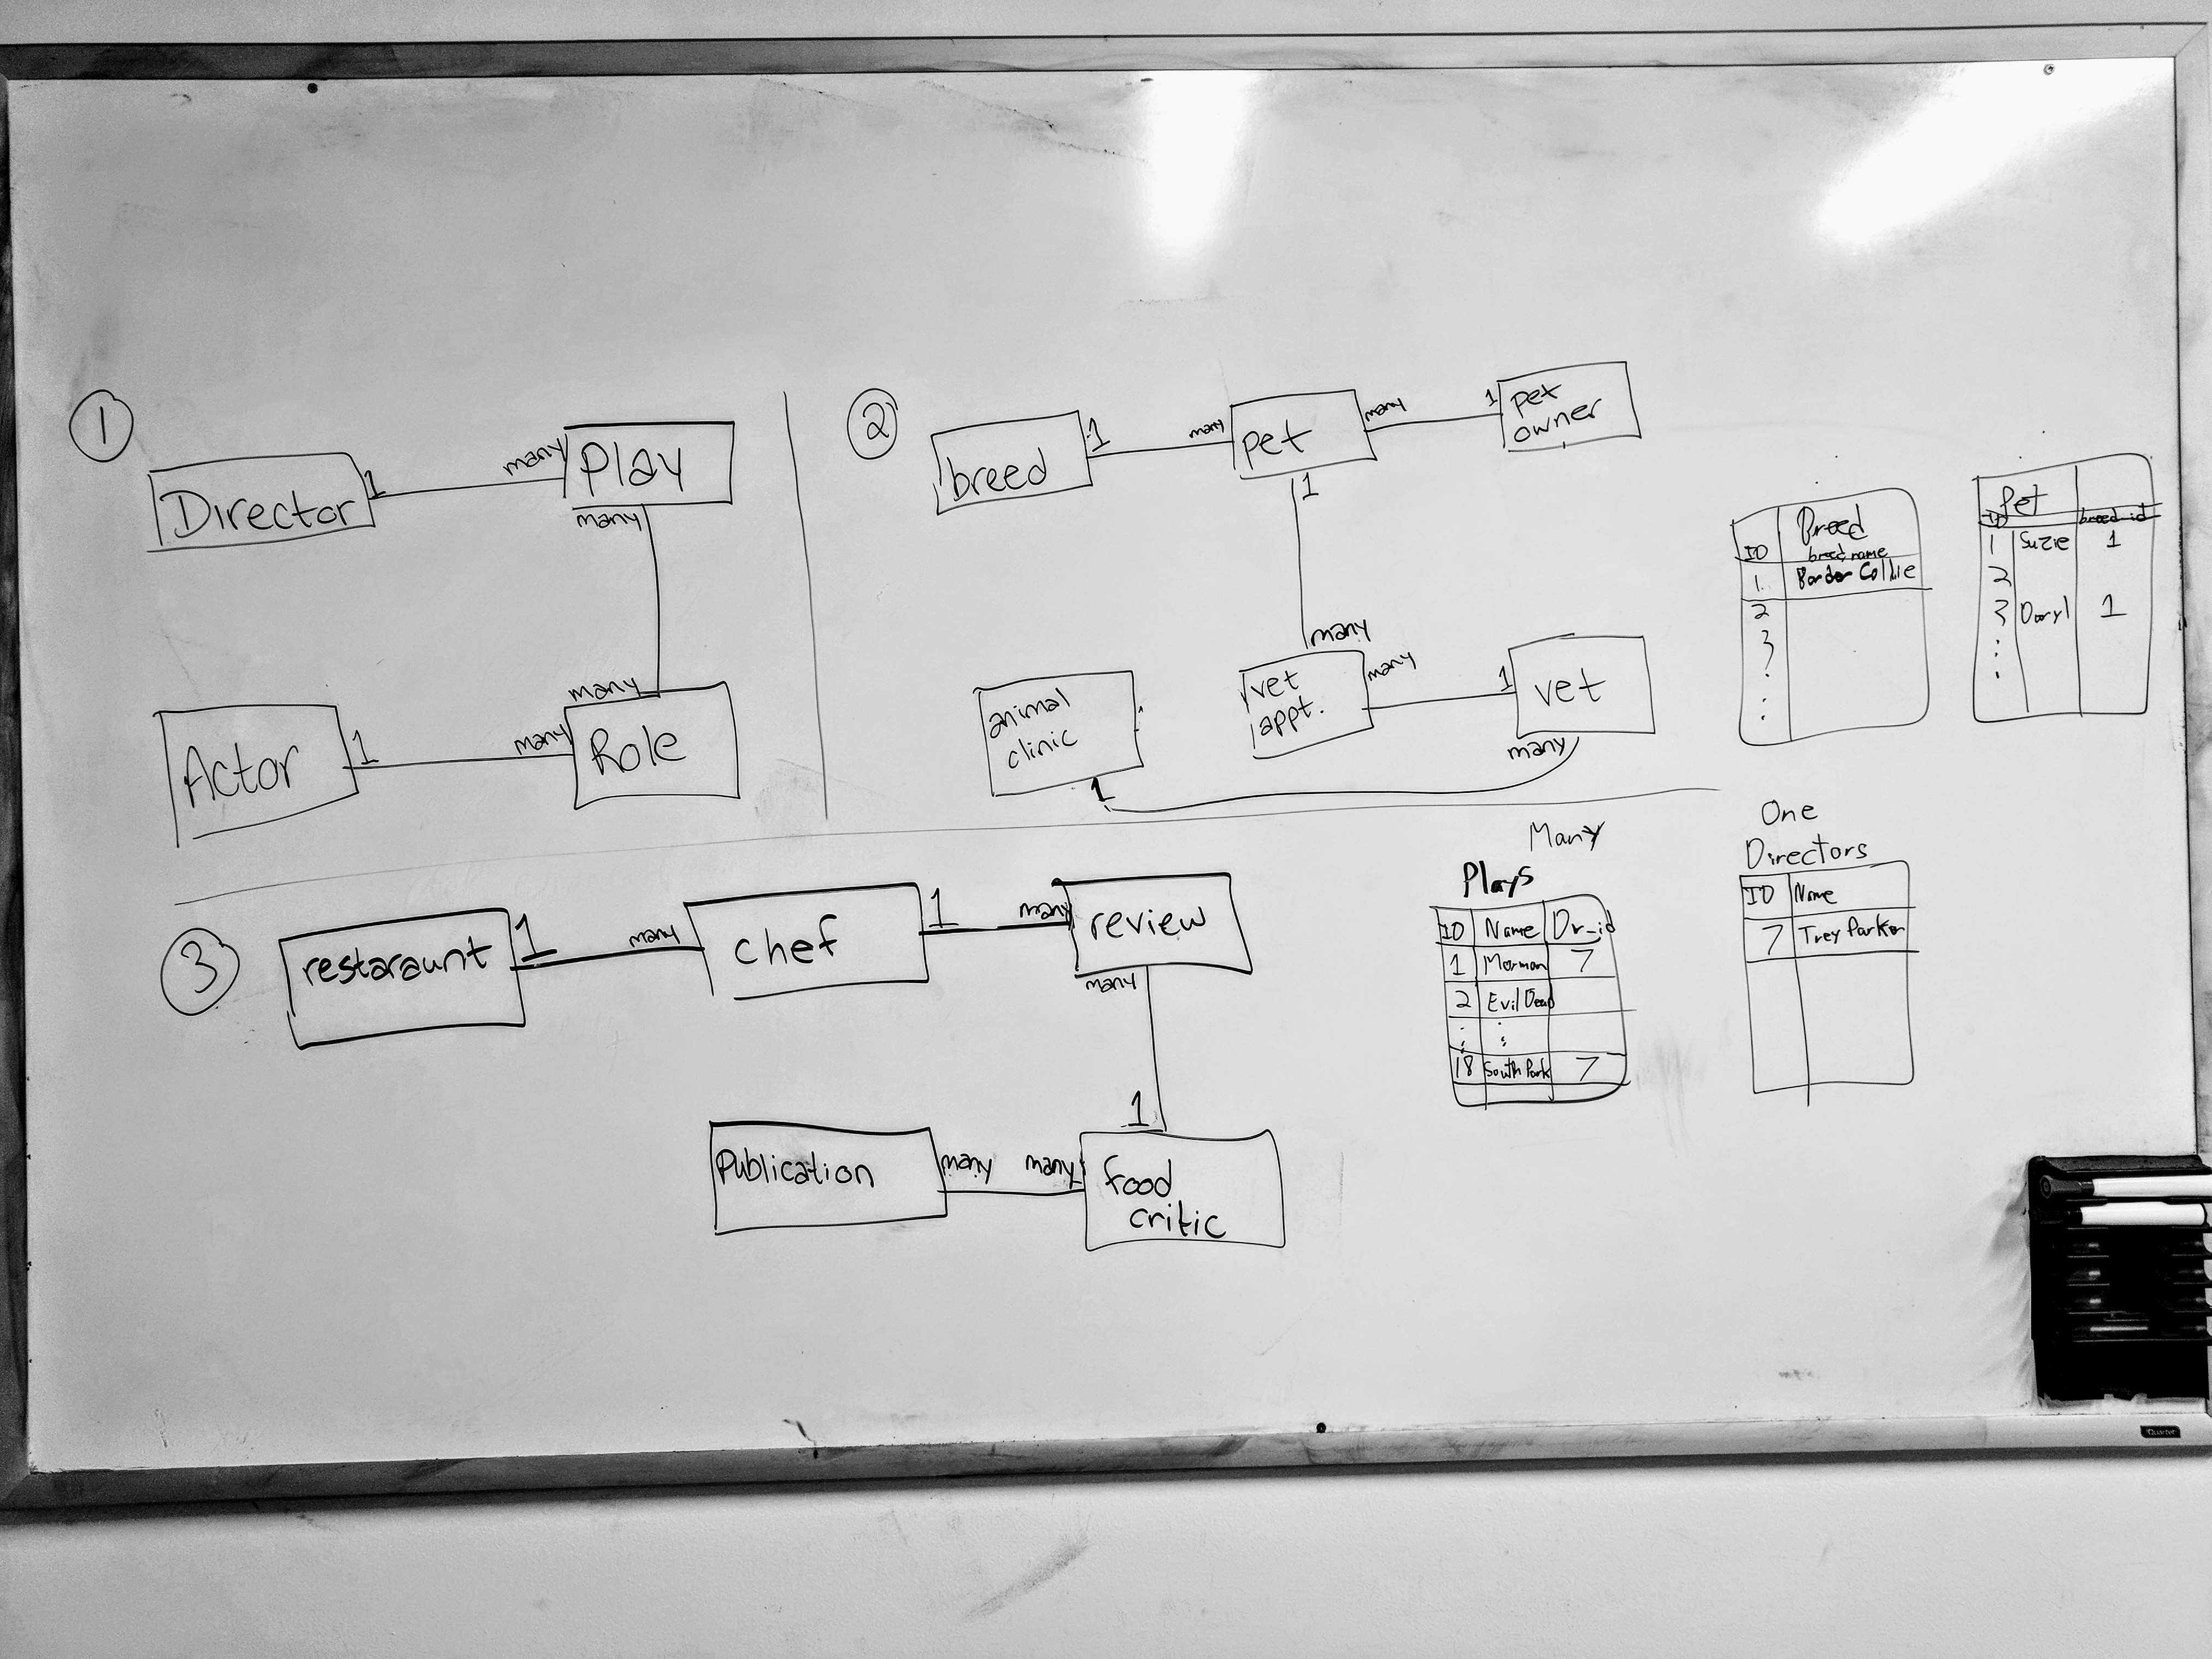 1
Director
1
many
Play
many
many
Actor
1
many
Role
2
breed
1
many
pet
many
1
pet
owner
1
many
animal
clinic
1
vet
appt.
many
1
vet
many
Breed
ID
breed name
1
Border Collie
2
3
Pet
ID
breed_id
1 Suzie 1
2
3 Daryl 1
3
restaraunt
1
many
chef
1
many
review
many
1
Publication
many
many
food
critic
Many
Plays
ID Name Dr_id
1 Mormon 7
2 Evil Dead
18 South Park 7
One
Directors
ID Name
7 Trey Parker
Quartet